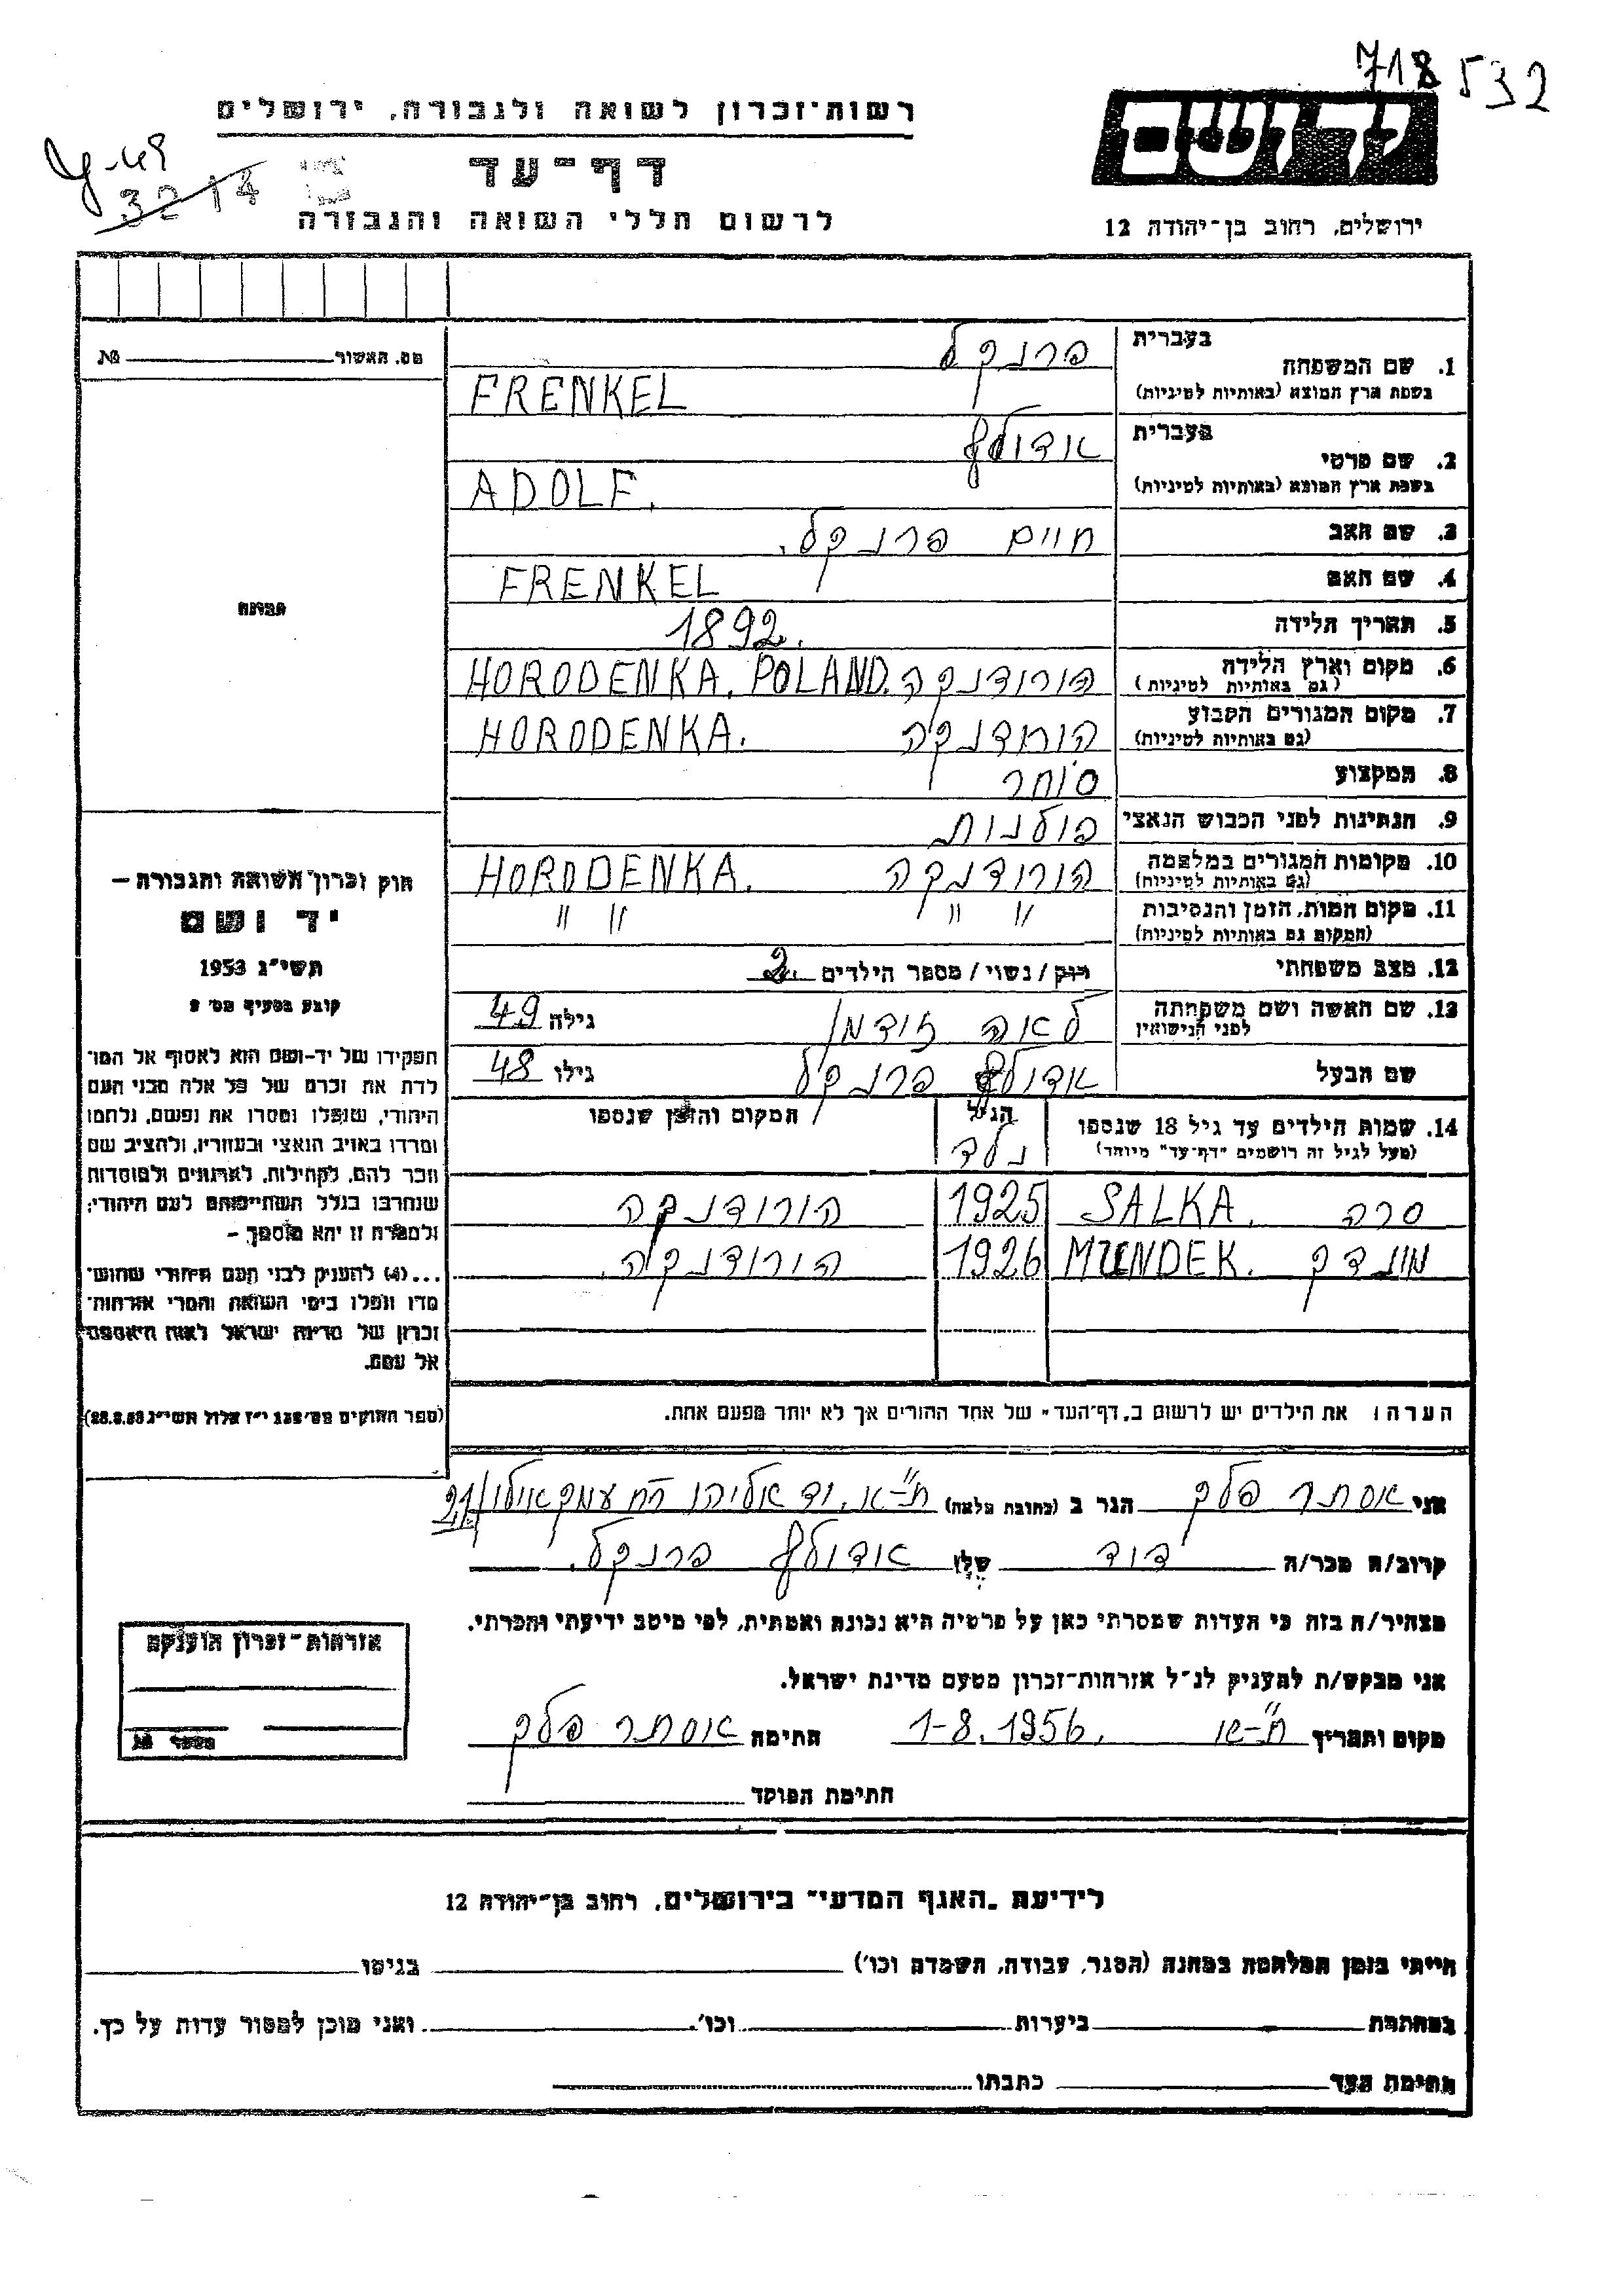 718532
רשות־זכרון לשואה ולגבורה, ירושלים
יד ושם
דף־עד
3214
לרשום חללי השואה והגבורה
ירושלים, רחוב בן־יהודה 12
מס. האשור № 
1. שם המשפחה
בעברית
פרנקל
בשפת ארץ המוצא (באותיות לטיניות)
FRENKEL
2. שם פרטי
בעברית
אדולף
בשפת ארץ המוצא (באותיות לטיניות)
ADOLF.
3. שם האב
חיים פרנקל.
4. שם האם
FRENKEL
5. תאריך הלידה
1892.
6. מקום וארץ הלידה
(גם באותיות לטיניות)
הורודנקה HORODENKA. POLAND.
7. מקום המגורים הקבוע
(גם באותיות לטיניות)
הורודנקה HORODENKA.
8. המקצוע
סוחר
9. הנתינות לפני הכבוש הנאצי
פולנות
10. מקומות המגורים במלחמה
(גם באותיות לטיניות)
הורודנקה HORODENKA.
11. מקום המות, הזמן והנסיבות
(המקום גם באותיות לטיניות)
" " " "
12. מצב משפחתי
רווק / נשוי / מספר הילדים 2.
13. שם האשה ושם משפחתה
לפני הנישואין
לאה זידמן גילה 49
שם הבעל
אדולף פרנקל גילו 48
14. שמות הילדים עד גיל 18 שנספו
(מעל לגיל זה רושמים "דף־עד" מיוחד)
הגיל
נולד
המקום והזמן שנספו
סרה SALKA. 1925 הורודנקה
מונדק MUNDEK. 1926 הורודנקה.
הערה: את הילדים יש לרשום ב"דף־העד" של אחד ההורים אך לא יותר מפעם אחת.
תמונה
חוק זכרון השואה והגבורה –
יד ושם
תשי"ג 1953
קובע בסעיף מס' 2
תפקידו של יד-ושם הוא לאסוף אל המו־
לדת את זכרם של כל אלה מבני העם
היהודי, שנפלו ומסרו את נפשם, נלחמו
ומרדו באויב הנאצי ובעוזריו, ולהציב שם
וזכר להם, לקהילות, לארגונים ולמוסדות
שנחרבו בגלל השתייכותם לעם היהודי;
ולמטרה זו יהא מוסמך –
...(4) להעניק לבני העם היהודי שהוש־
מדו ונפלו בימי השואה והמרי אזרחות־
זכרון של מדינת ישראל לאות היאספם
אל עמם.
(ספר החוקים מס' 132 י"ז אלול תשי"ג 28.8.53)
אני אסתר פלק הגר ב (כתובת מלאה) ת"א. יד אליהו רח עמק אילון 21
קרוב/ה מכר/ה דוד של אדולף פרנקל.
מצהיר/ה בזה כי העדות שמסרתי כאן על פרטיה היא נכונה ואמתית, לפי מיטב ידיעתי והכרתי.
אני מבקש/ת להעניק לנ"ל אזרחות־זכרון מטעם מדינת ישראל.
מקום ותאריך ת"א 1-8.1956. חתימה אסתר פלק
חתימת הפוקד
אזרחות־זכרון הוענקה
מספר №
לידיעת "האגף המדעי" בירושלים, רחוב בן־יהודה 12
הייתי בזמן המלחמה במחנה (הסגר, עבודה, השמדה וכו') בגיטו
במחתרת ביערות וכו'. ואני מוכן למסור עדות על כך.
חתימת העד כתבתו